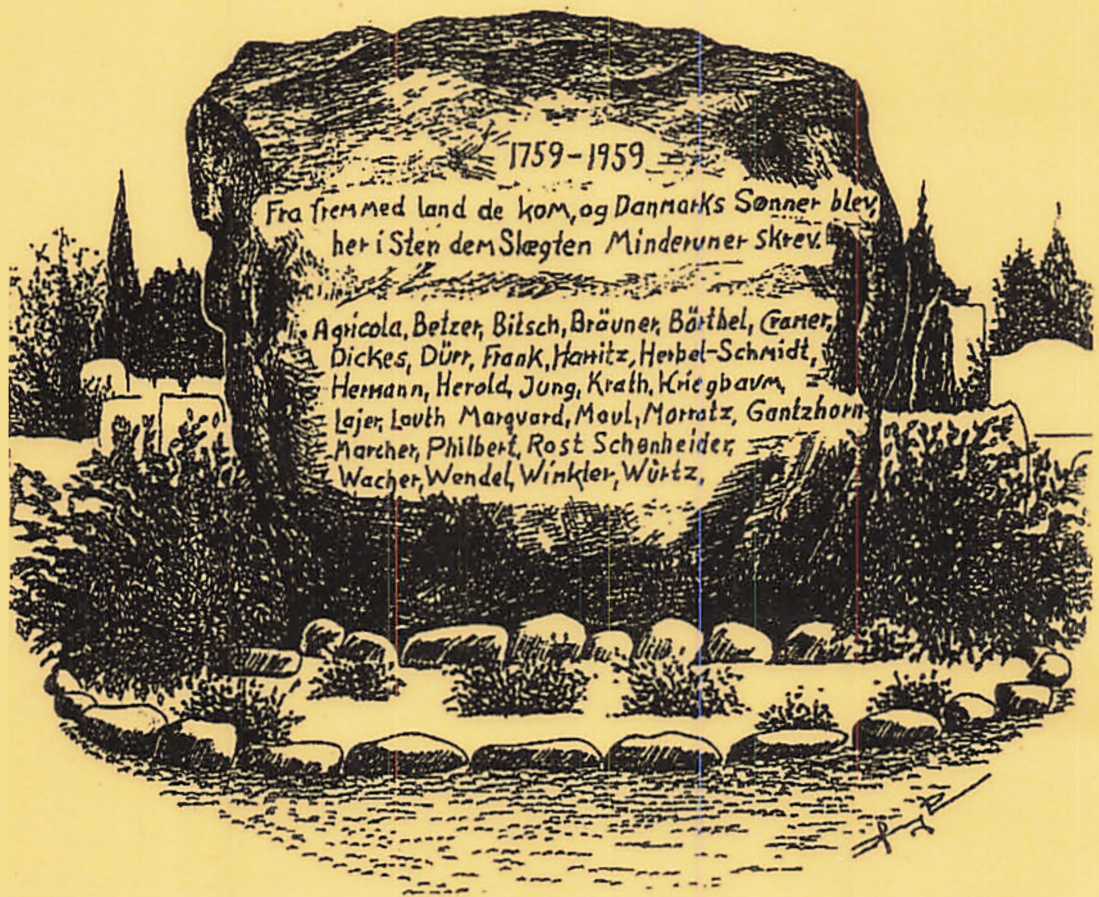 1759-1959
Fra fremmed land de kom, og Danmarks Sønner blev,
her i Sten dem Slægten Minderuner skrev.
Agricola, Betzer, Bitsch, Bräuner, Börthel, Cramer,
Dickes, Dürr, Frank, Harritz, Herbel-Schmidt,
Hermann, Herold, Jung, Krath, Kriegbaum,
Lajer, Lauth Marquard, Maul, Morratz, Gantzhorn
Marcher, Philbert, Rost Schønheider,
Wacher, Wendel, Winkler, Würtz,